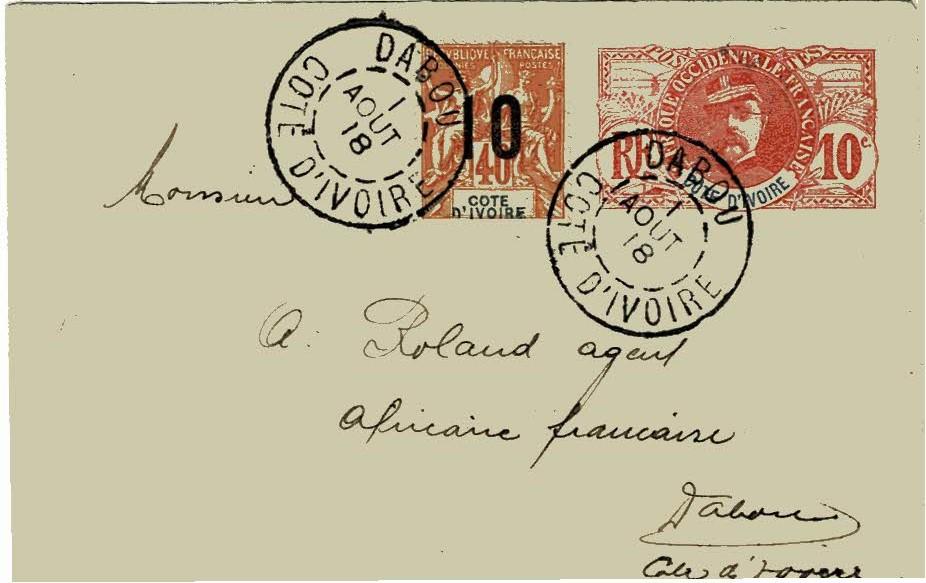 DABOU
1
AOUT
18
COTE D'IVOIRE
REPUBLIQUE FRANÇAISE
POSTES
10
40
COTE
D'IVOIRE
POSTES
AFRIQUE OCCIDENTALE FRANÇAISE
RF
10c
COTE D'IVOIRE
DABOU
1
AOUT
18
COTE D'IVOIRE
Monsieur
A. Roland agent
Africaine francaise
Dabou
Cote d'Ivoire